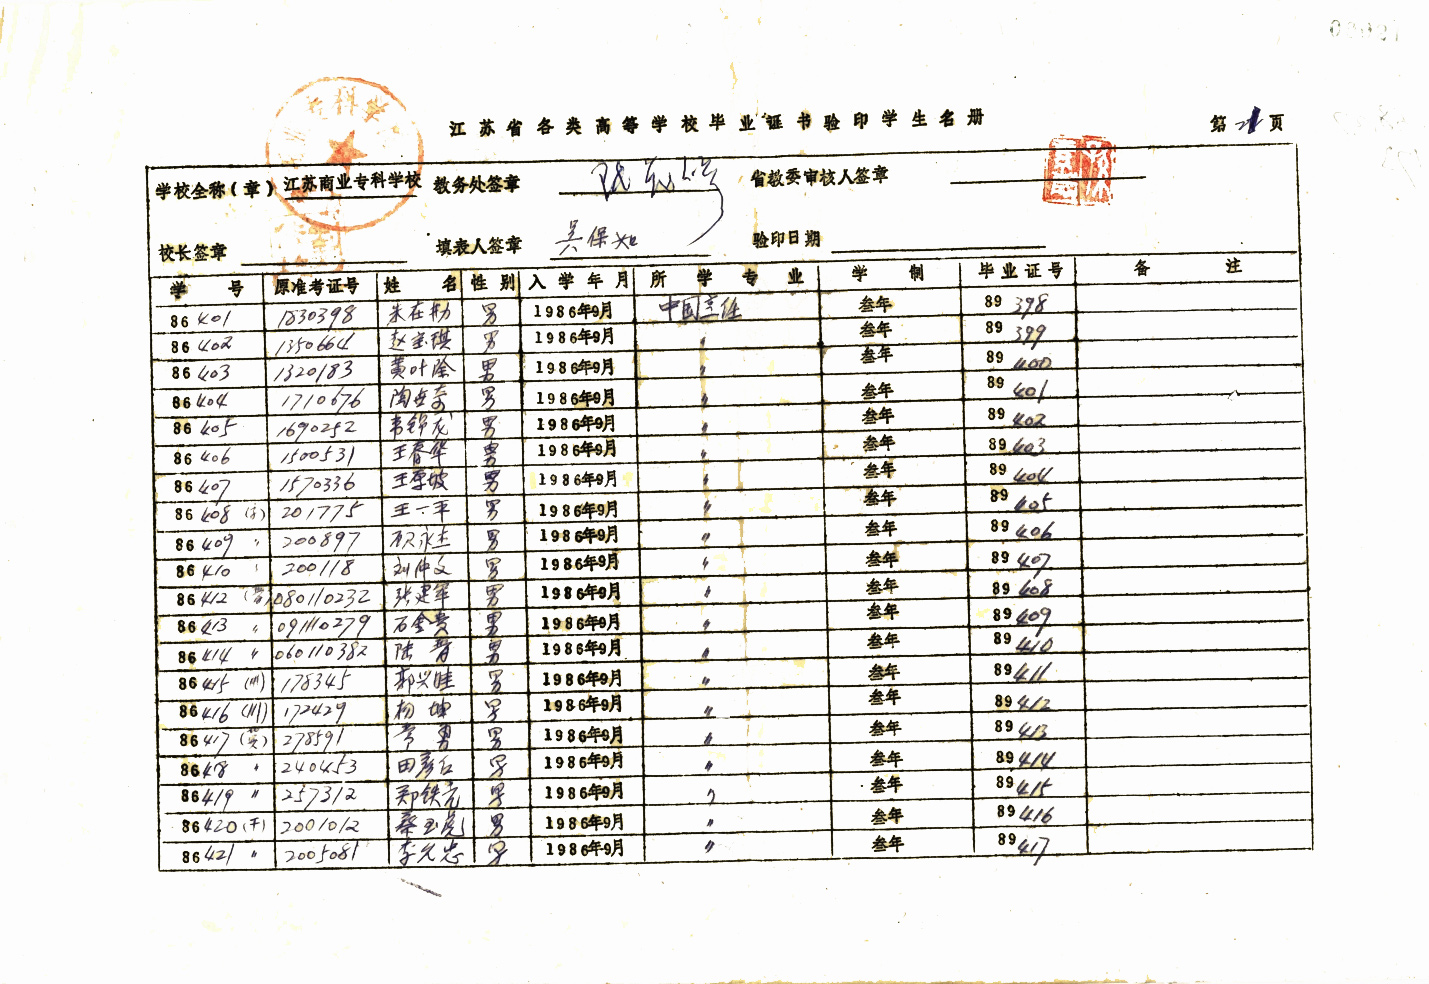 江苏省各类高等学校毕业证书验印学生名册
第 21 页
学校全称(章) 江苏商业专科学校 教务处签章 省教委审核人签章
校长签章 填表人签章 吴保如 验印日期
学号 原准考证号 姓名 性别 入学年月 所学专业 学制 毕业证号 备注
86401 1830398 朱在勤 男 1986年9月 中国烹饪 叁年 89398
86402 1350664 赵宝琪 男 1986年9月 〃 叁年 89399
86403 1320183 黄叶除 男 1986年9月 〃 叁年 89400
86404 1710676 陶 男 1986年9月 〃 叁年 89401
86405 1690252 韦锦龙 男 1986年9月 〃 叁年 89402
86406 1500531 王春华 男 1986年9月 〃 叁年 89403
86407 1570336 王厚坡 男 1986年9月 〃 叁年 89404
86408 201775 王一平 男 1986年9月 〃 叁年 89405
86409 〃 200897 永杰 男 1986年9月 〃 叁年 89406
86410 〃 200118 刘仲文 男 1986年9月 〃 叁年 89407
86412 080110232 张建军 男 1986年9月 〃 叁年 89408
86413 〃 091110279 石金贵 男 1986年9月 〃 叁年 89409
86414 〃 060110382 陆晋 男 1986年9月 〃 叁年 89410
86415 (川) 178345 郭兴胜 男 1986年9月 〃 叁年 89411
86416 (川) 172429 杨坤 男 1986年9月 〃 叁年 89412
86417 278591 常勇 男 1986年9月 〃 叁年 89413
86418 〃 240453 田彦 男 1986年9月 〃 叁年 89414
86419 〃 257312 郑铁亮 男 1986年9月 〃 叁年 89415
86420 2001012 蔡玉彪 男 1986年9月 〃 叁年 89416
86421 〃 2005081 李允忠 男 1986年9月 〃 叁年 89417